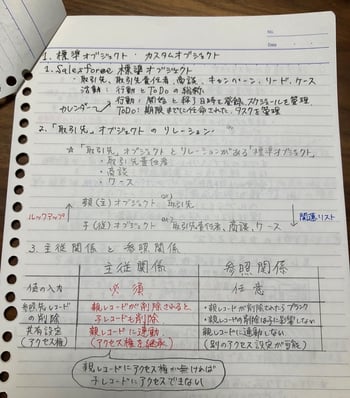 No.
Date
1. 標準オブジェクト・カスタムオブジェクト
1. Salesforce 標準オブジェクト
・取引先、取引先責任者、商談、キャンペーン、リード、ケース
活動：行動とToDoの総称
カレンダー
行動：開始と終了日時を登録、スケジュールを管理
ToDo：期限までに任命された、タスクを管理
2.「取引先」オブジェクトのリレーション
☆「取引先」オブジェクトとリレーションがある「標準オブジェクト」
・取引先責任者
・商談
・ケース
ルックアップ
親(主)オブジェクト ex) 取引先
子(従)オブジェクト ex) 取引先責任者、商談、ケース
関連リスト
3. 主従関係と参照関係
主従関係 参照関係
値の入力 必須 任意
参照先レコードの削除 親レコードが削除されると子レコードも削除 ・親レコードが削除されたらブランク
・親レコードの削除は子に影響しない
共有設定(アクセス権) 親レコードに連動(アクセス権を継承) 親レコードに連動しない(別のアクセス設定が可能)
親レコードにアクセス権が無ければ
子レコードにアクセスできない